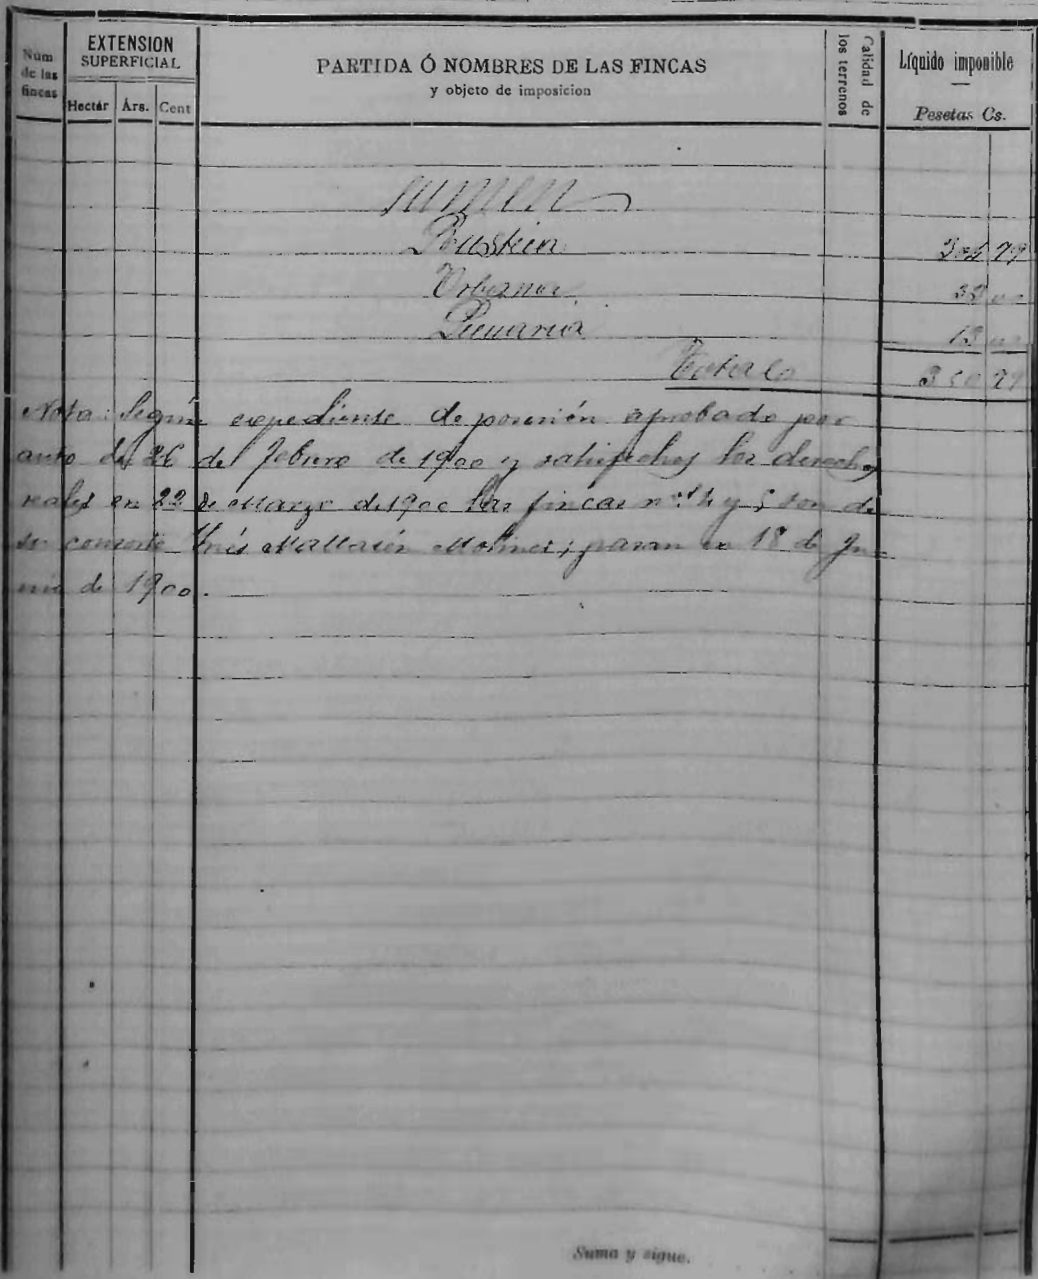 Num de las fincas
EXTENSION SUPERFICIAL
Hectár Árs. Cent
PARTIDA Ó NOMBRES DE LAS FINCAS
y objeto de imposicion
Calidad de los terrenos
Líquido imponible
Pesetas Cs.
Rústica 79
Urbana
Pecuaria
Total 79
Nota: Según expediente de posesión aprobado por
auto de 26 de febrero de 1900 y satisfechos los derechos
reales en 22 de Marzo de 1900 las fincas nos. 4 y 5 son de
su consorte Inés Molines; pasan en 18 de Ju
nio de 1900.
Suma y sigue.